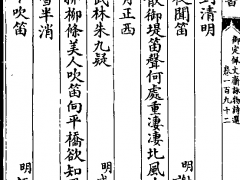 御定佩文齋詠物詩選
卷一百九十二
到清明
夜聞笛 明
散御堤笛聲何處重淒淒北風
月正西
武林朱九疑 明
折柳條美人吹笛向平橋欲知
雪半消
吹笛 明